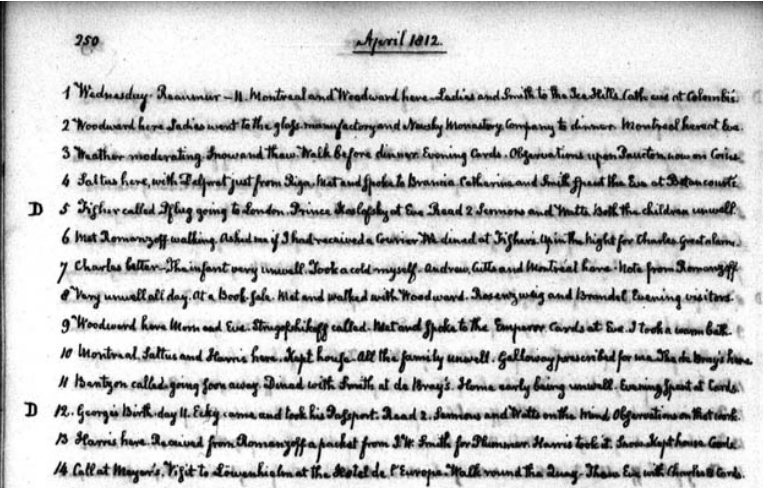 250 April 1812.
1 Wednesday. Reaumur – 11. Montreal and Woodward here. Ladies and Smith to the Ice Hills. Cath. eve at Colombi's.
2 Woodward here. Ladies went to the glass manufactory and Newsky Monastery. Company to dinner. Montreal here at Eve.
3 Weather moderating. Snow and thaw. Walk before dinner. Evening Cards. Observations upon Paucton, now on Coins
4 Saltus here, with Delprat just from Riga. Met and spoke to Brancia. Catherine and Smith spent the Eve at Betancourt's
D 5 Fisher called. Pflug going to London. Prince Koslofsky at Eve. Read 2 Sermons and Watts. Both the children unwell.
6 Met Romanzoff walking. Asked me if I had received a Courier. We dined at Fisher's. Up in the Night for Charles. Great alarm.
7 Charles better. The infant very unwell. Took a cold myself. Andrew, Cutts and Montreal here. Note from Romanzoff
8 Very unwell all day. At a Book Sale. Met and walked with Woodward. Rosenzweig and Brandel Evening visitors.
9 Woodward here Morn and Eve. Strogofshikoff called. Met and spoke to the Emperor. Cards at Eve. I took a warm bath.
10 Montreal, Saltus and Harris here. Kept house. All the family unwell. Galloway prescribed for me. The de Bray's here
11 Bentzon called, going soon away. Dined with Smith at de Bray's. Home early being unwell. Evening Spent at Cards.
D 12. George's Birth-day 11. Ecky came and took his Passport. Read 2. Sermons and Watts on the Mind. Observations on that work.
13 Harris here. Received from Romanzoff a packet from J. W. Smith for Plummer. Harris took it. Snow. Kept house. Cards
14 Call at Meyer's. Visit to Löwenhielm at the Hotel de l'Europe. Walk round the Quay. Thaw. Eve with Charles & Cards.